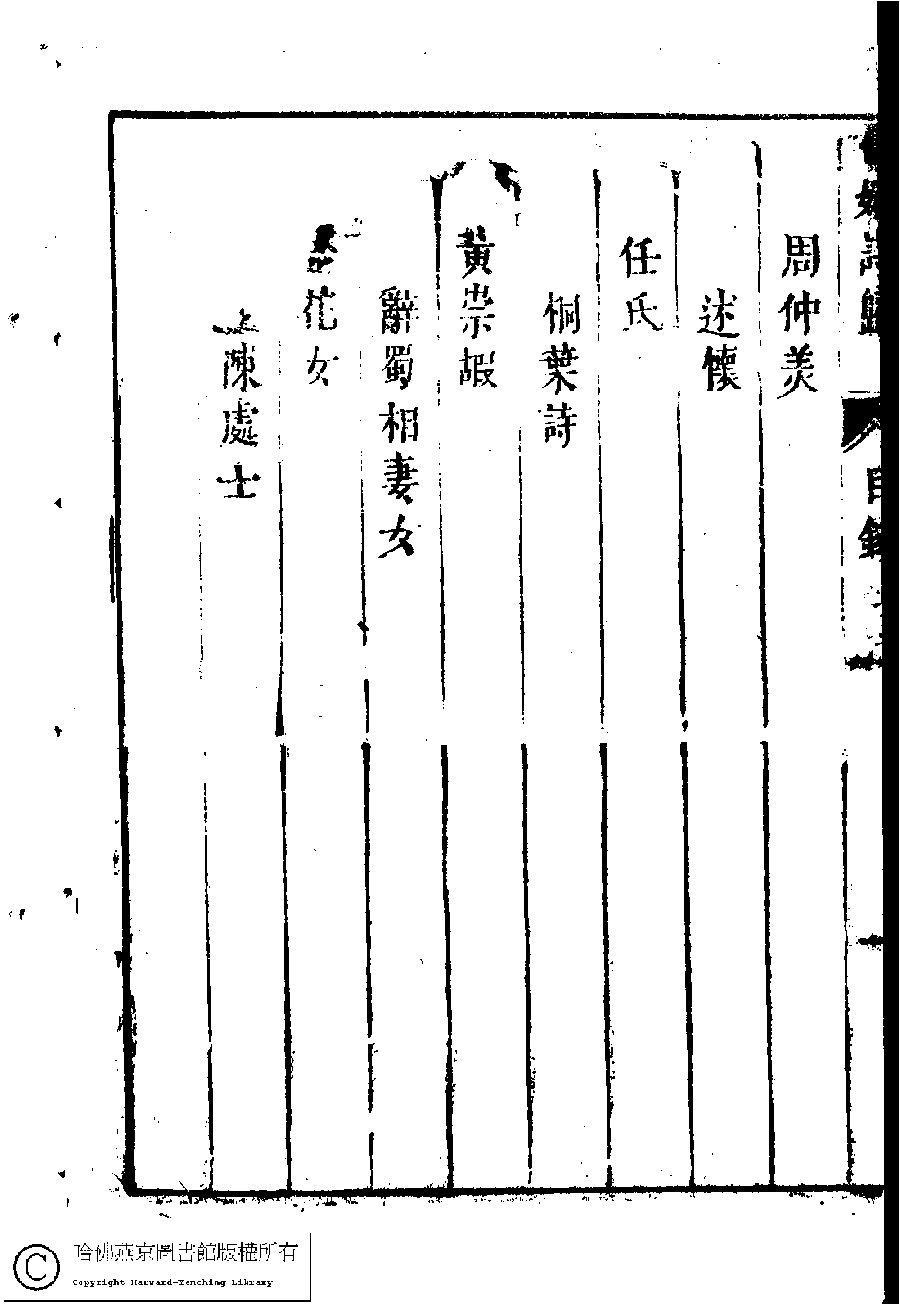 詩歸 目錄
周仲美
述懷
任氏
桐葉詩
黃崇嘏
辭蜀相妻女
花女
上陳處士
哈佛燕京圖書館版權所有
Copyright Harvard-Yenching Library